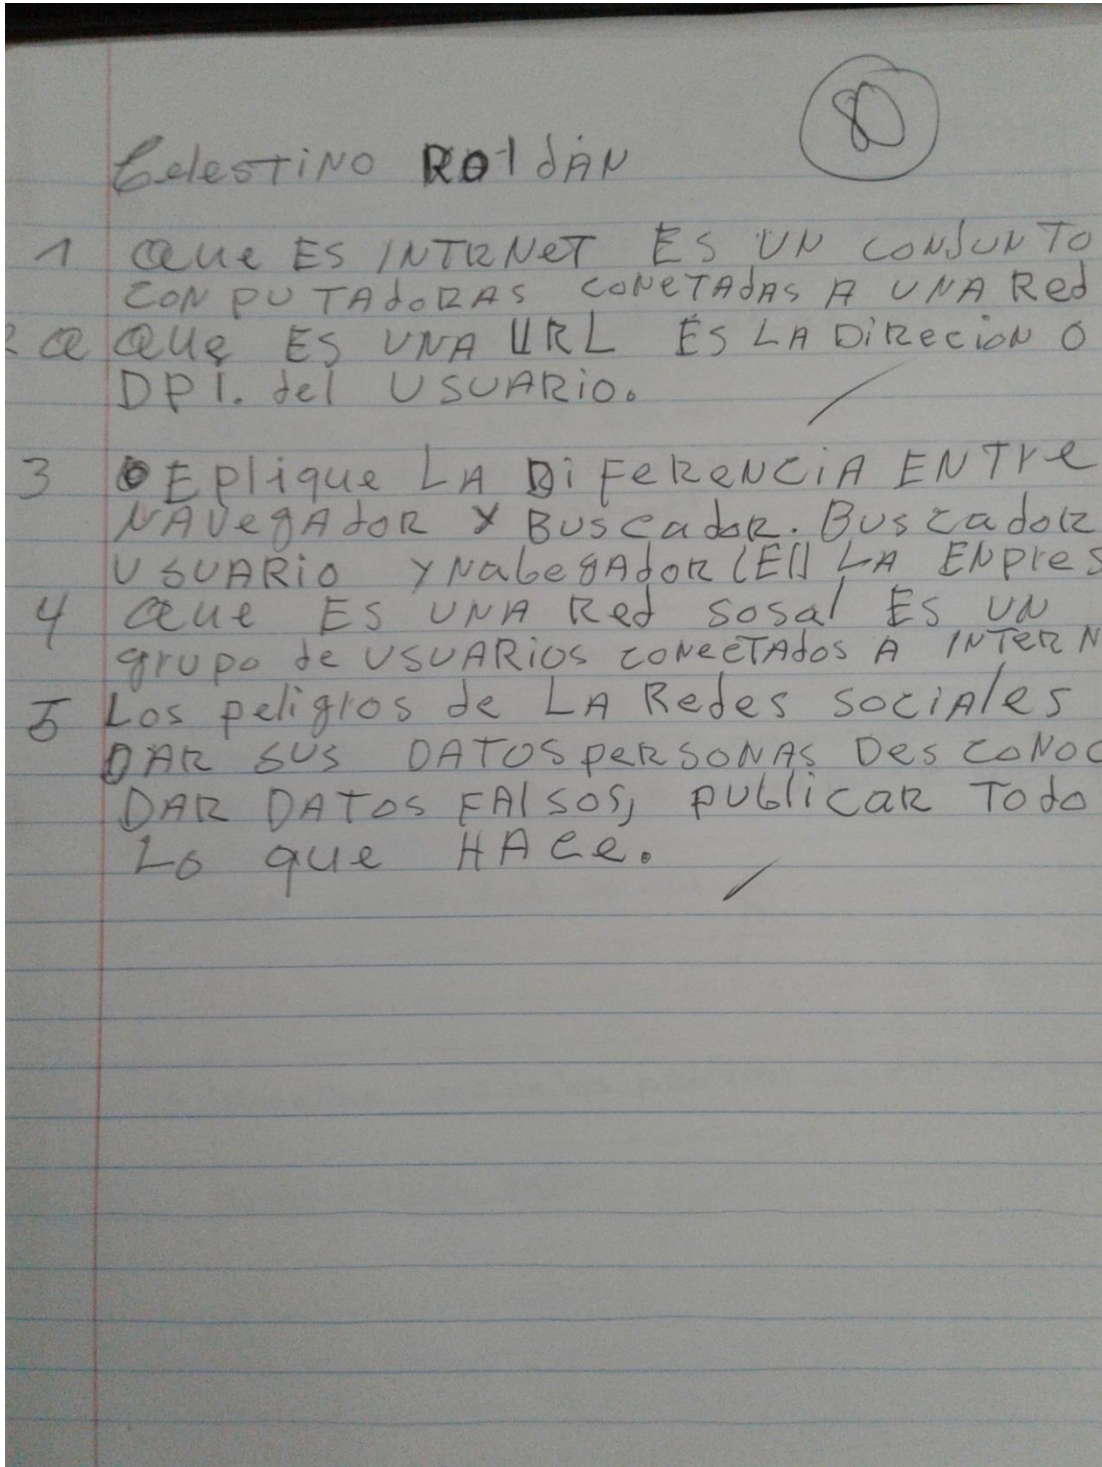 80
Celestino Roldán
1 Que ES INTRNET ES UN CONJUNTO
CONPUTAdORAS CONETAdAS A UNA Red
2 Que ES UNA URL ES LA DiRecioN O
DPI. del USUARio.
3 EPlique LA DiFeReNCiA ENTre
NAVegAdoR Y BuscadoR. BuscadoR
USUARiO Y NabegAdoR LA ENpres
4 Que ES UNA Red sosal ES UN
grupo de USUARios coNecTAdos A INTERN
5 Los peligros de LA Redes sociAles
DAR SUS DATOS peRSONAS DesCoNoc
DAR DATos FAlsos, publicaR Todo
Lo que HACe.